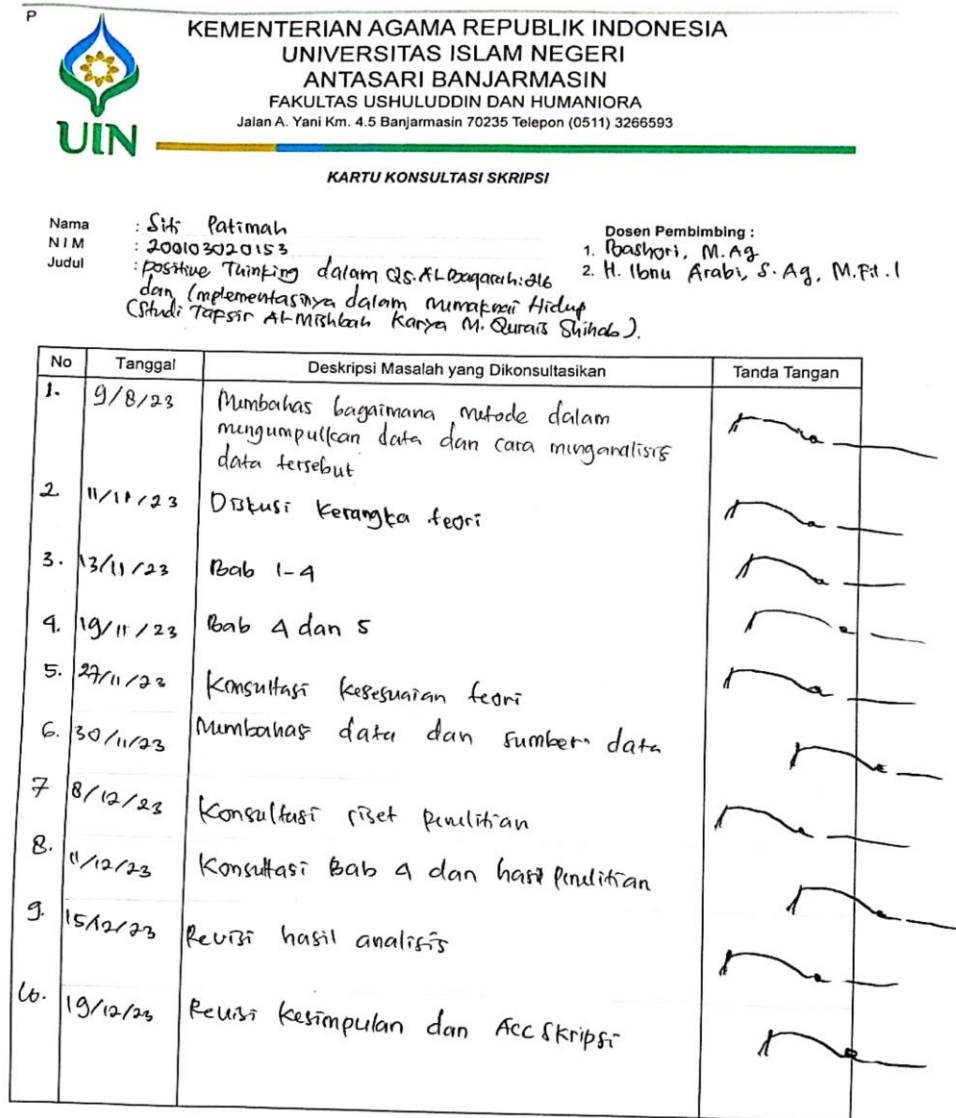 P
KEMENTERIAN AGAMA REPUBLIK INDONESIA
UNIVERSITAS ISLAM NEGERI
ANTASARI BANJARMASIN
FAKULTAS USHULUDDIN DAN HUMANIORA
Jalan A. Yani Km. 4.5 Banjarmasin 70235 Telepon (0511) 3266593
UIN
KARTU KONSULTASI SKRIPSI
Nama : Siti Patimah
NIM : 200103020153
Judul : Positive Thinking dalam Qs. Al-Baqarah: 216
dan Implementasinya dalam Memaknai Hidup
(Studi Tapsir Al-Mishbah Karya M. Qurais Shihab).
Dosen Pembimbing :
1. Bashori, M.Ag
2. H. Ibnu Arabi, S.Ag, M.Fil.I
No Tanggal Deskripsi Masalah yang Dikonsultasikan Tanda Tangan
1. 9/8/23 Membahas bagaimana metode dalam
mengumpulkan data dan cara menganalisis
data tersebut
2. 11/11/23 Diskusi kerangka teori
3. 13/11/23 Bab 1-4
4. 19/11/23 Bab 4 dan 5
5. 27/11/23 Konsultasi kesesuaian teori
6. 30/11/23 Membahas data dan sumber data
7 8/12/23 Konsultasi riset penelitian
8. 11/12/23 Konsultasi Bab 4 dan hasil penelitian
9. 15/12/23 Revisi hasil analisis
10. 19/12/23 Revisi kesimpulan dan Acc Skripsi